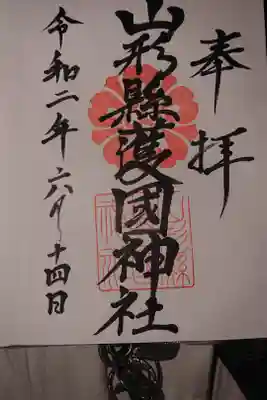 奉拝
山形縣護國神社
令和二年六月十四日